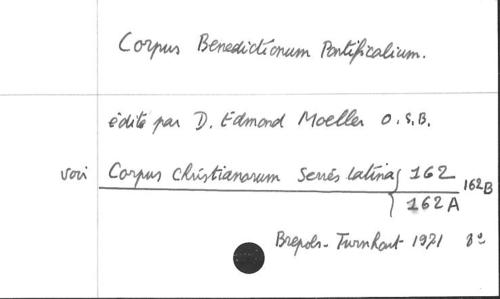 Corpus Benedictionum Pontificalium.
édité par D. Edmond Moeller O.S.B.
voir Corpus Christianorum Series latina 162
162 A
162 B
Brepols - Turnhout 1971 8º